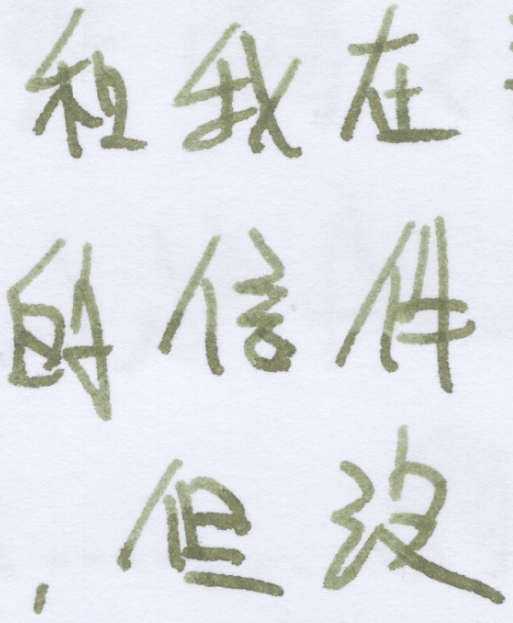 和我在
的信件
，但没